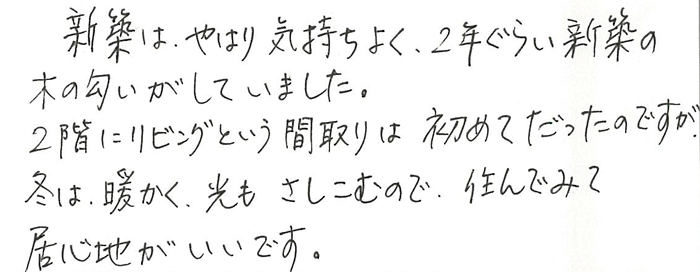 新築は、やはり気持ちよく、2年ぐらい新築の
木の匂いがしていました。
2階にリビングという間取りは初めてだったのですが、
冬は、暖かく、光もさしこむので、住んでみて
居心地がいいです。